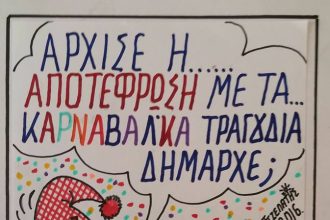 ΑΡΧΙΣΕ Η......
ΑΠΟΤΕΦΡΩΣΗ ΜΕ ΤΑ...
ΚΑΡΝΑΒΑΛΙΚΑ ΤΡΑΓΟΥΔΙΑ
ΔΗΜΑΡΧΕ;